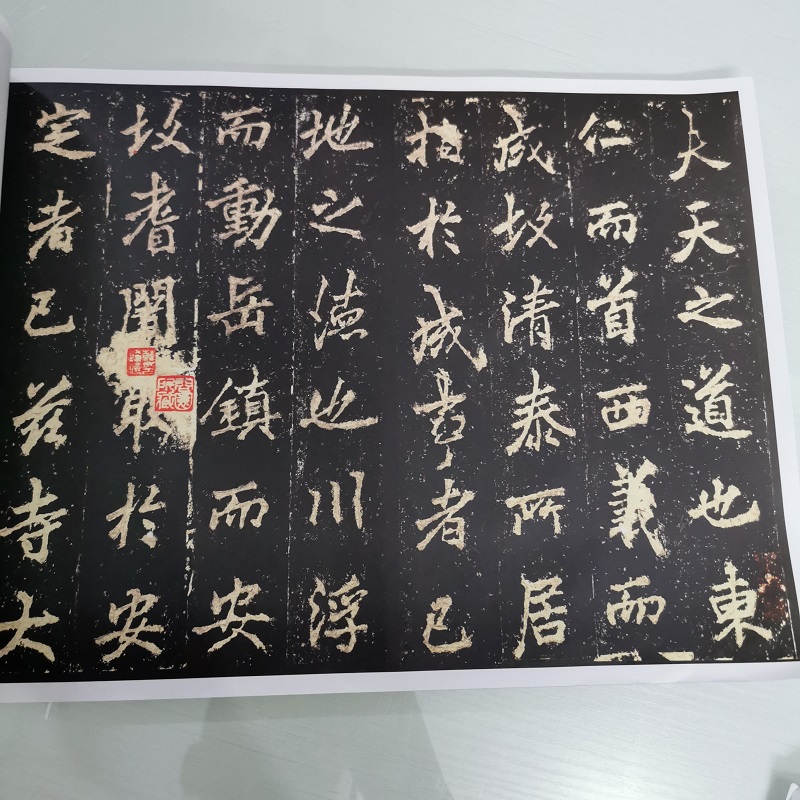 夫天之道也東
仁而首西義而
成故清泰所居
指於成事者已
地之德也川浮
而動岳鎮而安
故耆闍取於安
定者已茲寺大